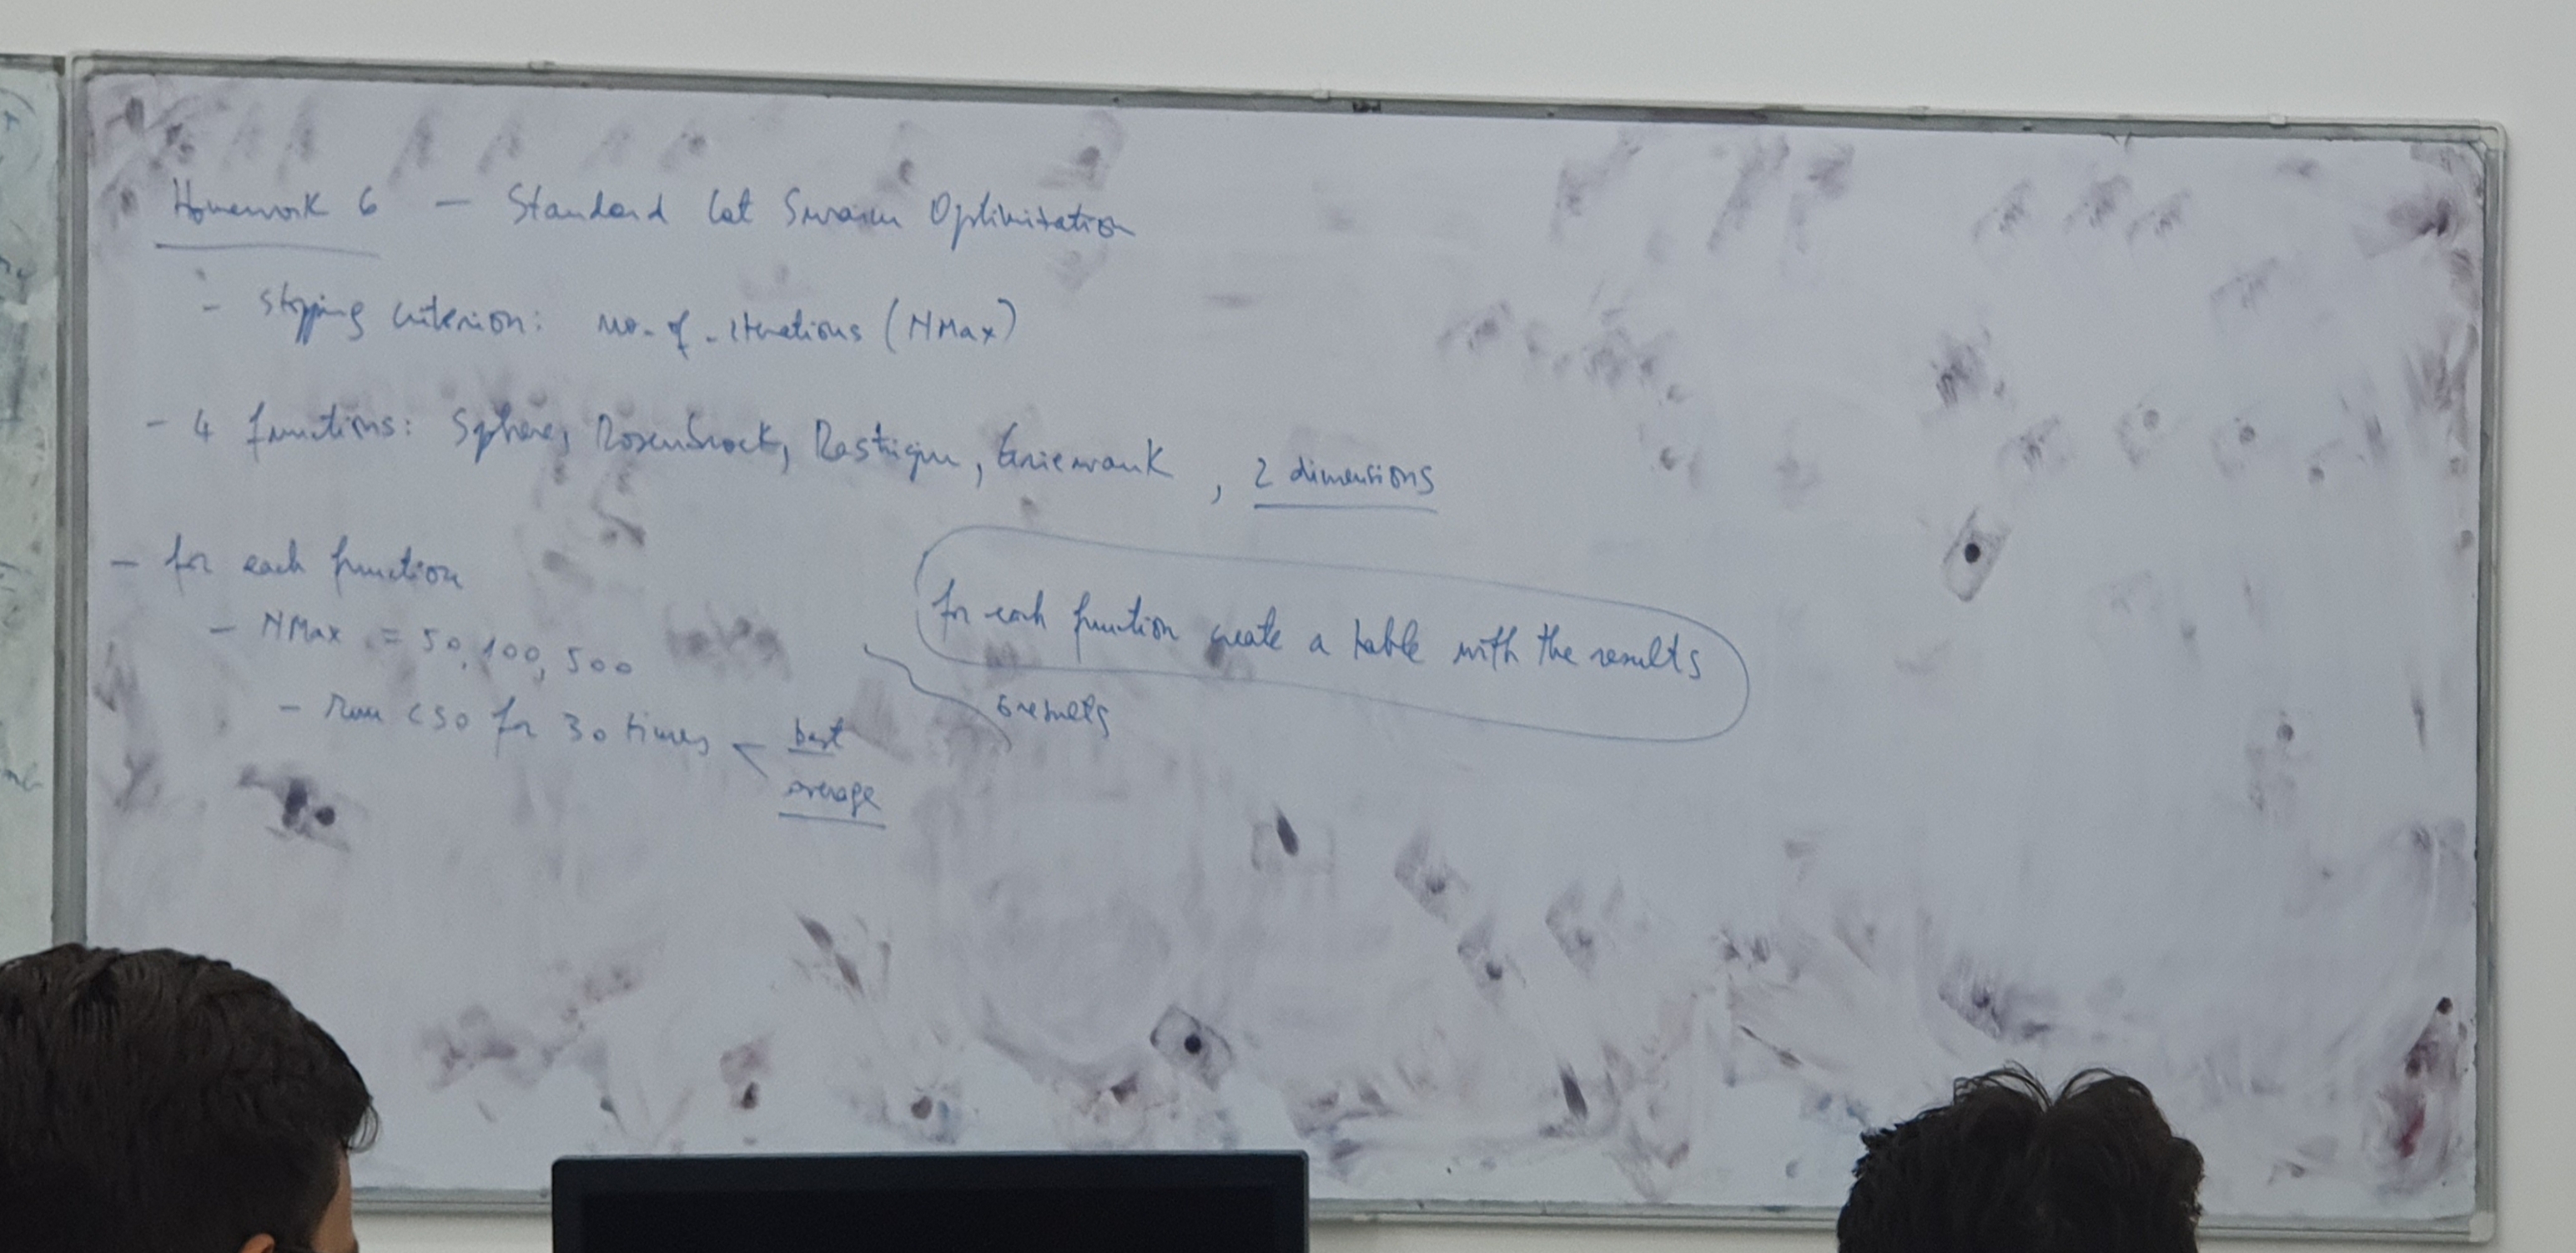 Homework 6 - Standard Cat Swarm Optimization
- stopping criterion: no. of iterations (NMax)
- 4 functions: Sphere, Rosenbrock, Rastrigin, Griewank, 2 dimensions
- for each function
- NMax = 50, 100, 500
- Run CSO for 30 times < best
average
6 results
for each function create a table with the results